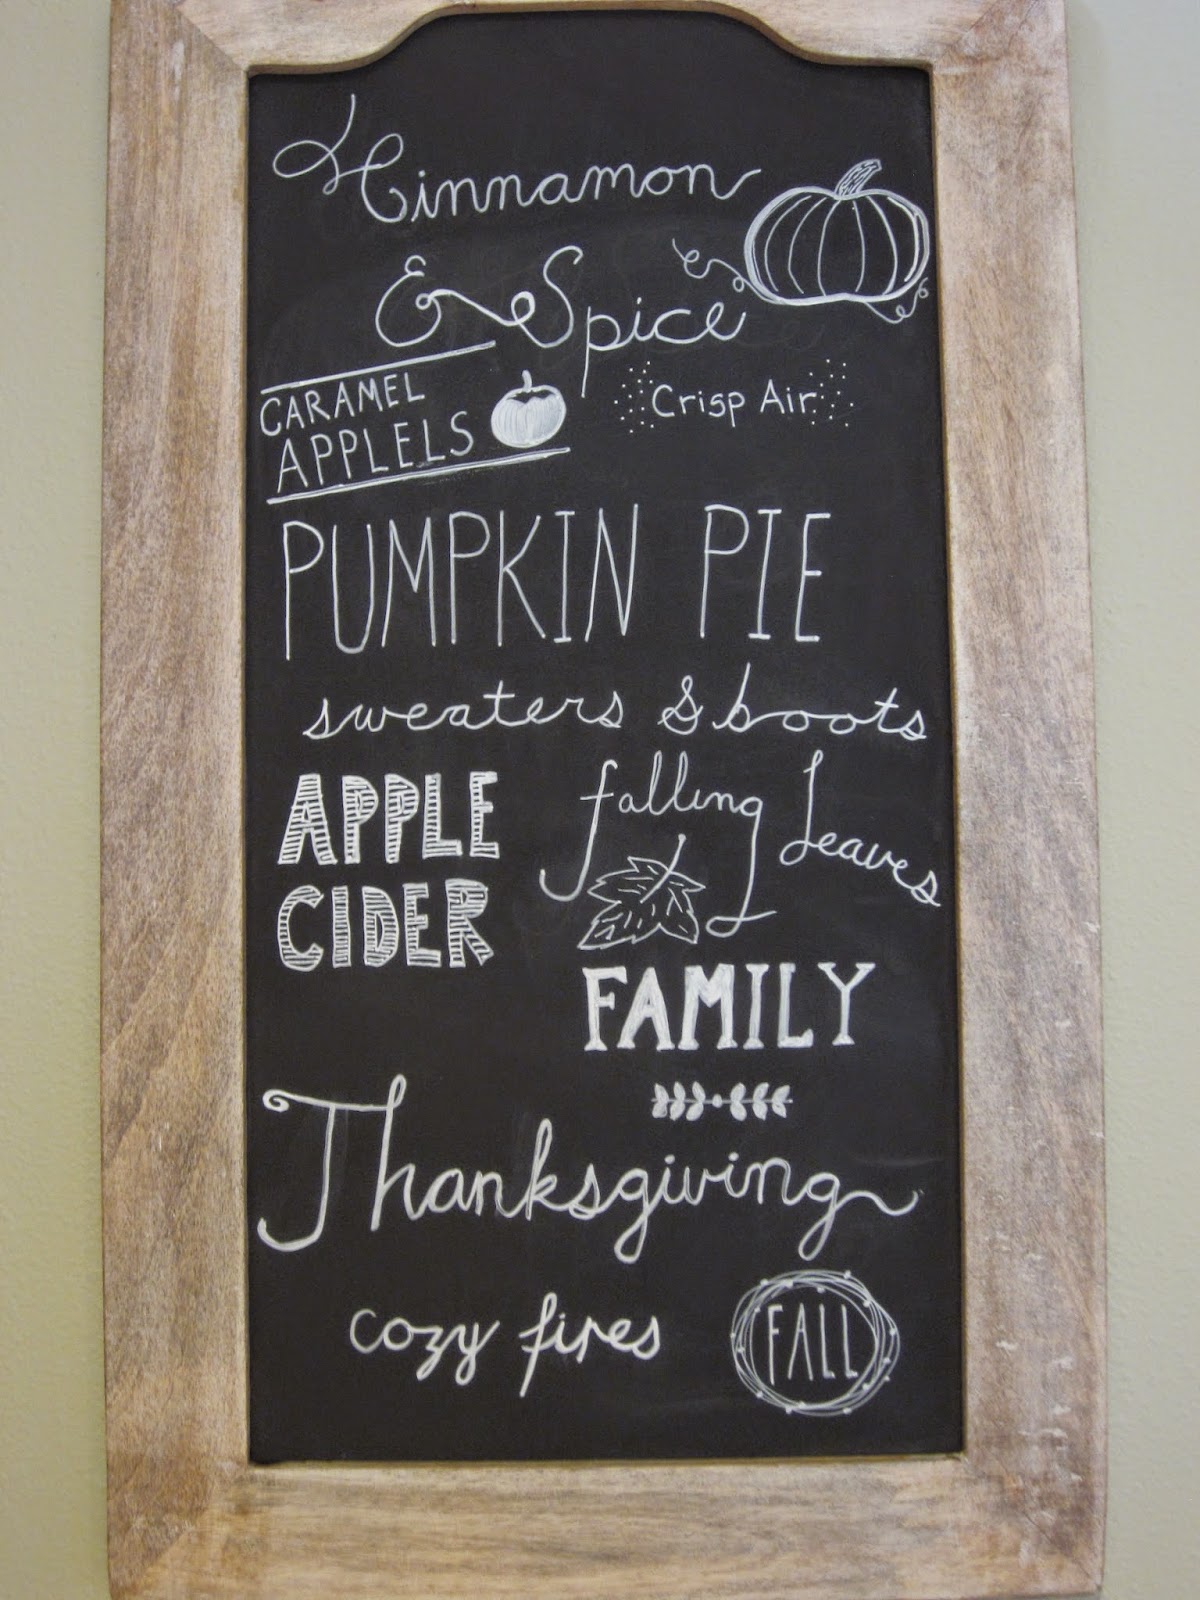 Cinnamon
& Spice
CARAMEL
APPLELS
Crisp Air
PUMPKIN PIE
sweaters & boots
APPLE
CIDER
falling Leaves
FAMILY
Thanksgiving
cozy fires
FALL